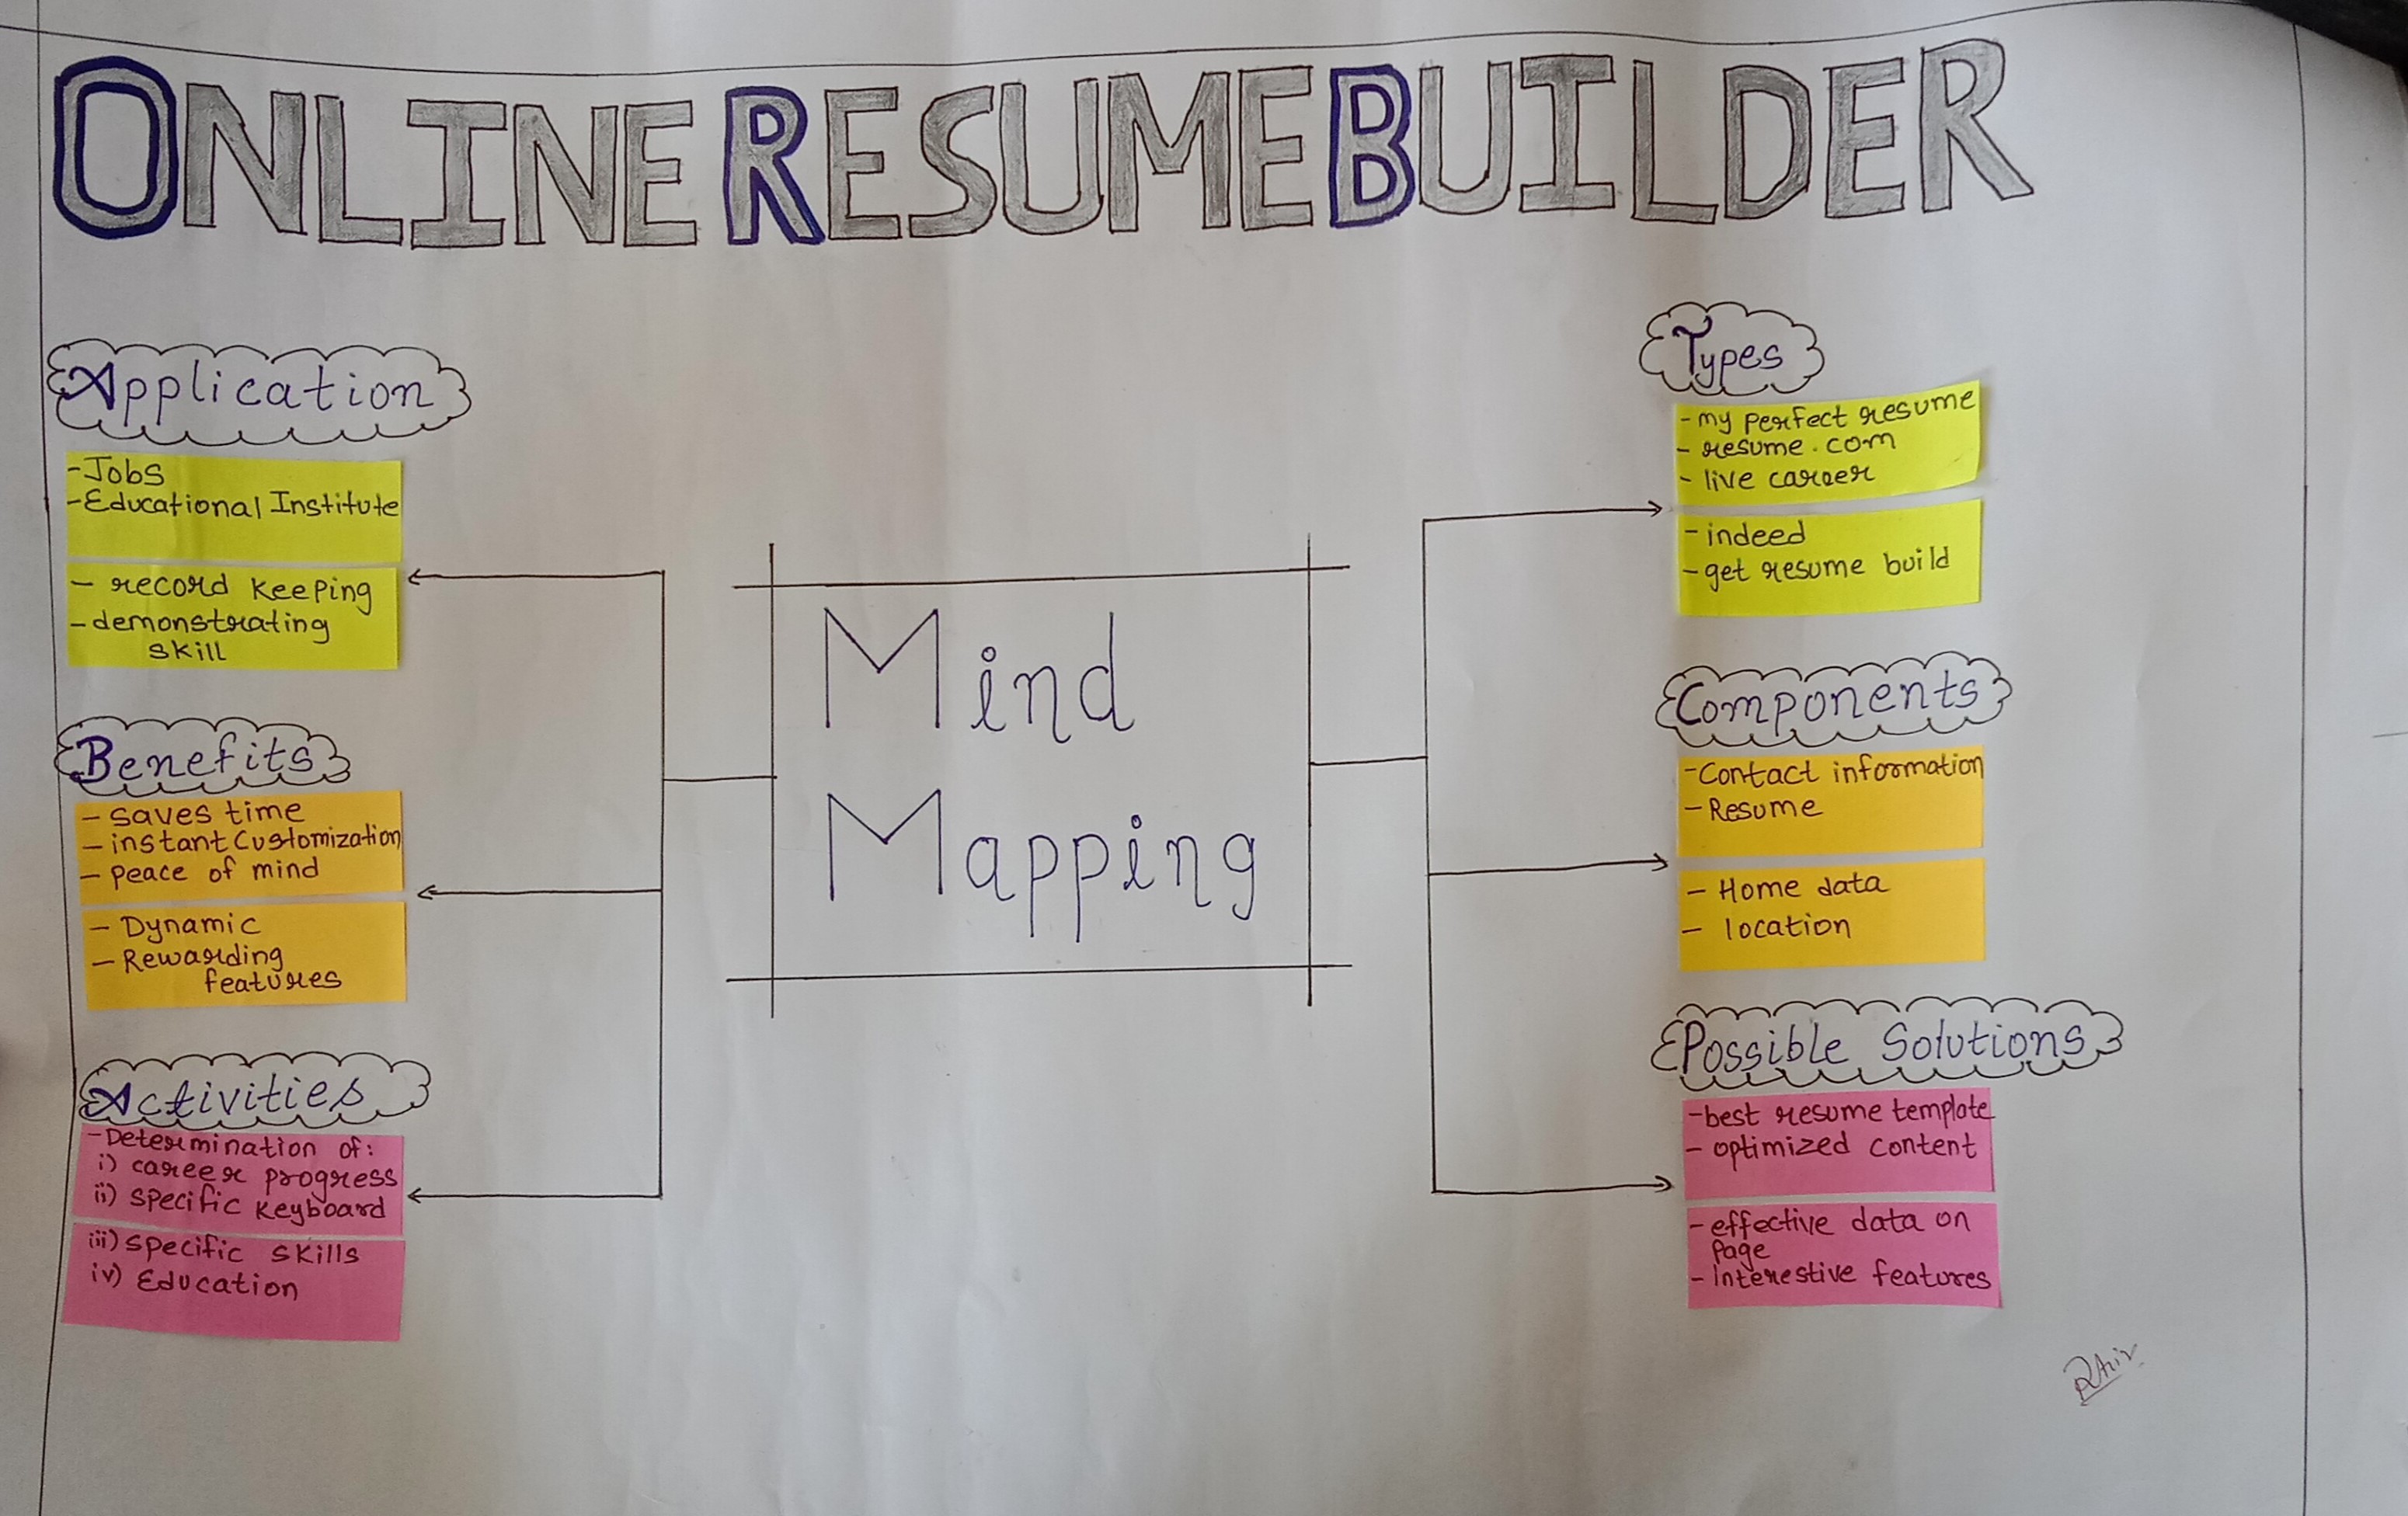 ONLINE RESUME BUILDER
Application
-Jobs
-Educational Institute
- record keeping
-demonstrating
skill
Benefits
- saves time
- instant Customization
- peace of mind
- Dynamic
- Rewarding
features
Activities
-Determination of:
i) career progress
ii) specific keyboard
iii) specific skills
iv) Education
Mind
Mapping
Types
-my perfect resume
- resume.com
- live career
- indeed
-get resume build
Components
-Contact information
- Resume
- Home data
- location
Possible Solutions
-best resume template
- optimized content
-effective data on
page
- Interestive features